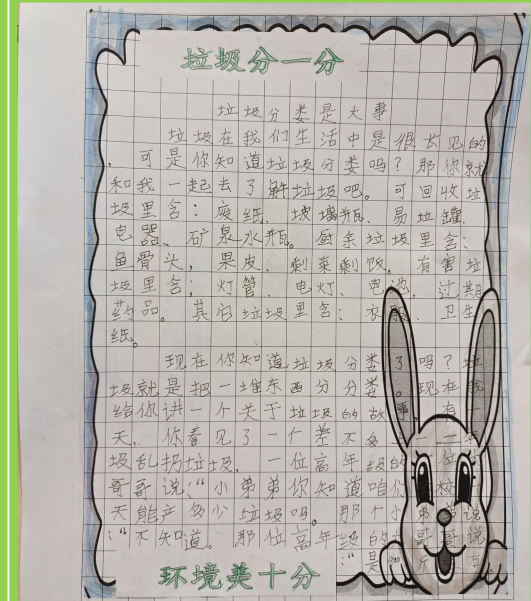 垃圾分一分
垃圾分类是大事
垃圾在我们生活中是很长见的
，可是你知道垃圾分类吗？那你就
和我一起去了解垃圾吧。可回收垃
圾里含：废纸、玻璃瓶、易拉罐、
电器、矿泉水瓶。厨余垃圾里含：
鱼骨头，果皮、剩菜剩饭。有害垃
圾里含；灯管、电灯、电池、过期
药品。其它垃圾里含：衣服、卫生
纸。
现在你知道垃圾分类了吗？垃
圾就是把一堆东西分分类。现在我
给你讲一个关于垃圾的故事，有一
天，你看见了一个差不多 二年
级乱扔垃圾，一位高年级的
哥哥说：“小弟弟你知道咱们 校
天能产多少垃圾吗。那个小弟弟说
：“不知道。那位高年级的哥哥说
：“是 斤
环境美十分